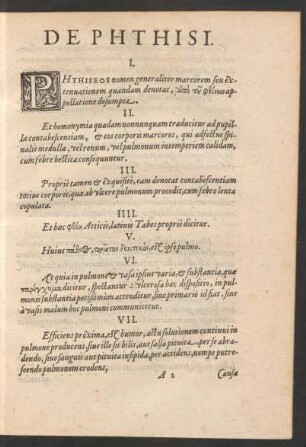 DE PHTHISI.
I.
PHTHISEOS nomen generaliter marcorem seu ex-
tenuationem quandam denotat, ἀπὸ τῦ φθίνειν ap-
pellatione desumpta.
II.
Et homonymia quadam nonnunquam traducitur ad pupil-
lę contabescentiam, & eos corporis marcores, qui adfectus spi-
nalis medullæ, vel renum, vel pulmonum intemperiem calidam,
cum febre hectica consequuntur.
III.
Propriè tamen & exquisitè, eam denotat contabescentiam
totius corporis, quæ ab ulcere pulmonum procedit, cum febre lenta
copulata.
IIII.
Et hæc φθόη Atticis, latinis Tabes propriè dicitur.
V.
Huius πάθους, πρῶτον δεκτικὸν, est ipse pulmo.
VI.
At quia in pulmone & vasa ipsius varia, & substantia, quæ
dicitur, spectantur: ulcerosa hæc dispositio, in pul-
monis substantia potissimum attenditur, siue primariò id fiat, siue
à vasis malum hoc pulmoni communicetur.
VII.
Efficiens proxima, est humor, actu solutionem continui in
pulmone producens, siue ille sit bilis, aut salsa pituita per se abra-
dendo, siue sanguis aut pituita insipida, per accidens, nempe putre-
scendo pulmonem erodens,
A 2 Causæ